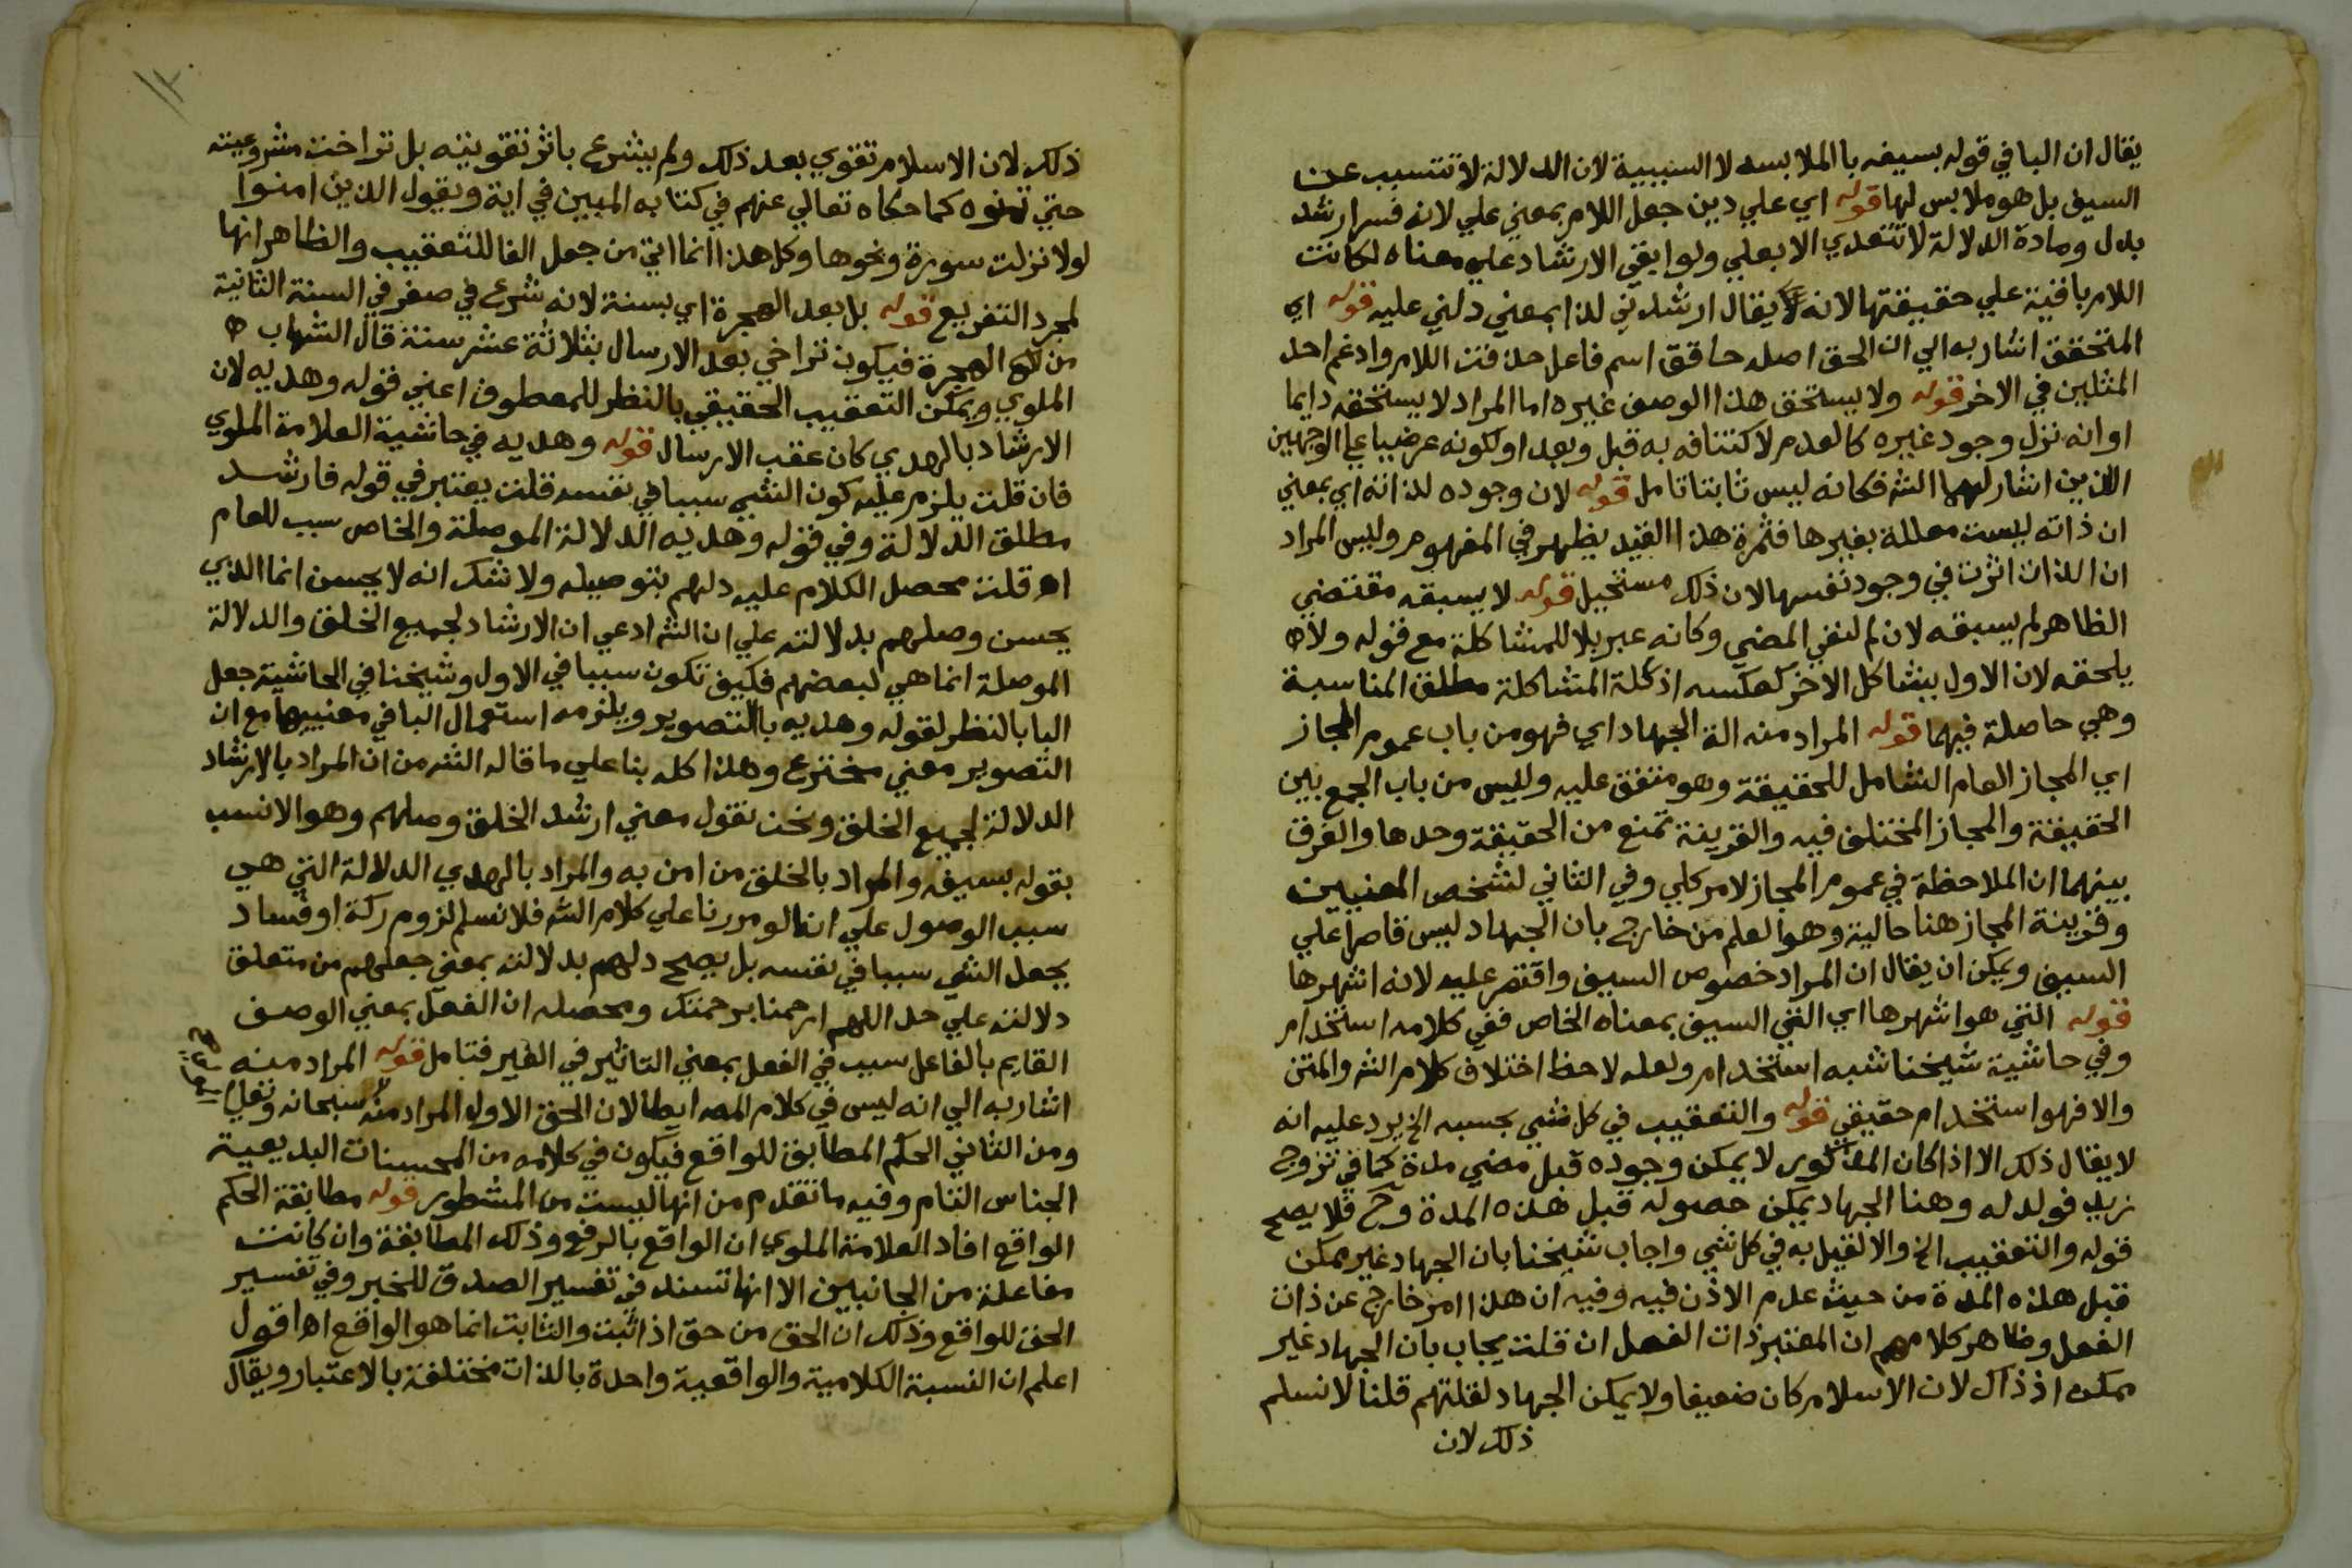 يقال ان البا في قوله بسيفه با الملابسه لا السببية لان الدلالة لا تتسبب عن
السيف بل هو ملابس لها قوله اي علي دين جعل اللام بمعني علي لانه فسر ارشد
بدل ومادة الدلالة لا تتعدي الا بعلي ولو ابقي الارشاد علي معناه لكانت
اللام باقية علي حقيقتها لانه يقال ارشدني لذا بمعني دلني عليه قوله اي
المتحقق اشار به الي ان الحق اصله حاقق اسم فاعل حذفت اللام وادغم احد
المثلين في الاخر قوله ولا يستحق هذا الوصف غيره اما المراد لا يستحقه دايما
او انه نزل وجود غيره كالعدم لاكتنافه به قبل وبعد او لكونه عرضيا علي الوجهين
الذين اشار لهما الش فكانه ليس ثابتا تامل قوله لان وجوده لذاته اي بمعني
ان ذاته ليست معللة بغيرها فثمرة هذا القيد يظهر في المفهوم وليس المراد
ان الذات اثرت في وجود نفسها لان ذلك مستحيل قوله لا يسبقه مقتضي
الظاهر لم يسبقه لان لم لنفي المضي وكانه عبر بلا للمشاكلة مع قوله ولا
يلحقه لان الاول يشاكل الاخر كعكسه اذ علة المشاكلة مطلق المناسبة
وهي حاصلة فيهما قوله المراد منه الة الجهاد اي فهو من باب عموم المجاز
اي المجاز العام الشامل للحقيقة وهو متفق عليه وليس من باب الجمع بين
الحقيقة والمجاز المختلف فيه والقرينة تمنع من الحقيقة وحدها والفرق
بينهما ان الملاحظة في عموم المجاز لامر كلي وفي الثاني لشخص المعنيين
وقرينة المجاز هنا حالية وهو العلم من خارج بان الجهاد ليس قاصرا علي
السيف ويمكن ان يقال ان المراد خصوص السيف واقتصر عليه لانه اشهرها
قوله التي هو اشهرها اي التي السيف بمعناه الخاص ففي كلامه استخدام
وفي حاشية شيخنا شبه استخدام ولعله لاحظ اختلاف كلام الش والمتن
والا فهو استخدام حقيقي قوله والتعقيب في كل شي بحسبه الخ يرد عليه انه
لا يقال ذلك الا اذا كان لا يمكن وجوده قبل مضي مدة كما في تزوج
زيد فولد له وهنا الجهاد يمكن حصوله قبل هذه المدة وح فلا يصح
قوله والتعقيب الخ والا لقيل به في كل شي واجاب شيخنا بان الجهاد غير ممكن
قبل هذه المدة من حيث عدم الاذن فيه وفيه ان هذا امر خارج عن ذات
الفعل وظاهر كلامهم ان المعتبر ذات الفعل ان قلت يجاب بان الجهاد غير
ممكن اذ ذاك لان الاسلام كان ضعيفا ولا يمكن الجهاد لقلتهم قلنا لا نسلم
ذلك لان
١٢
ذلك لان الاسلام تقوي بعد ذلك ولم يشرع باثر تقويته بل تراخت مشروعيته
حتي تمنوه كما حكاه تعالي عنهم في كتابه المبين في اية ويقول الذين امنوا
لولا نزلت سورة ونحوها وكل هذا انما اتي من جعل الفا للتعقيب والظاهر انها
لمجرد التفريع قوله بل بعد الهجرة اي بسنة لانه شرع في صفر في السنة الثانية
من الهجرة فيكون تراخي بعد الارسال بثلاثة عشر سنة قال الشهاب
الملوي ويمكن التعقيب الحقيقي بالنظر للمعطوف اعني قوله وهديه لان
الارشاد بالهدي كان عقب الارسال قوله وهديه في حاشية العلامة الملوي
فان قلت يلزم عليه كون الشي سببا في نفسه قلت يعتبر في قوله فارشد
مطلق الدلالة وفي قوله وهديه الدلالة الموصلة والخاص سبب للعام
اه قلت محصل الكلام عليه دلهم بتوصيله ولا شك انه لا يحسن انما الذي
يحسن وصلهم بدلالته علي ان الش ادعي ان الارشاد لجميع الخلق والدلالة
الموصلة انما هي لبعضهم فكيف تكون سببا في الاول وشيخنا في الحاشية جعل
البا بالنظر لقوله وهديه بالتصوير ويلزمه استعمال البا في معنييها مع ان
التصوير معني مخترع وهذا كله بنا علي ما قاله الش من ان المراد بالارشاد
الدلالة لجميع الخلق ونحن نقول معني ارشد الخلق وصلهم وهو الانسب
بقوله بسيفه والمراد بالخلق من امن به والمراد بالهدي الدلالة التي هي
سبب الوصول علي اننا لو مررنا علي كلام الش فلا نسلم لزوم ركة او فساد
يجعل الشي سببا في نفسه بل يصح دلهم بدلالته بمعني جعلهم من متعلق
دلالته علي حد اللهم ارحمنا برحمتك ومحصله ان الفعل بمعني الوصف
القايم بالفاعل سبب في الفعل بمعني التاثير في الغير فتامل قوله المراد منه
اشار به الي انه ليس في كلام المصـ ايطا لان الحق الاول المراد منه سبحانه وتعالي
ومن الثاني الحكم المطابق للواقع فيكون في كلامه من المحسنات البديعية
الجناس التام وفيه ما تقدم من انها ليست من المشطور قوله مطابقة الحكم
الواقع افاد العلامة الملوي ان الواقع بالرفع وذلك المطابقة وان كانت
مفاعلة من الجانبين الا انها تسند في تفسير الصدق للخبر وفي تفسير
الحق للواقع وذلك ان الحق من حق اذا ثبت والثابت انما هو الواقع اه اقول
اعلم ان النسبة الكلامية والواقعية واحدة بالذات مختلفة بالاعتبار ويقال